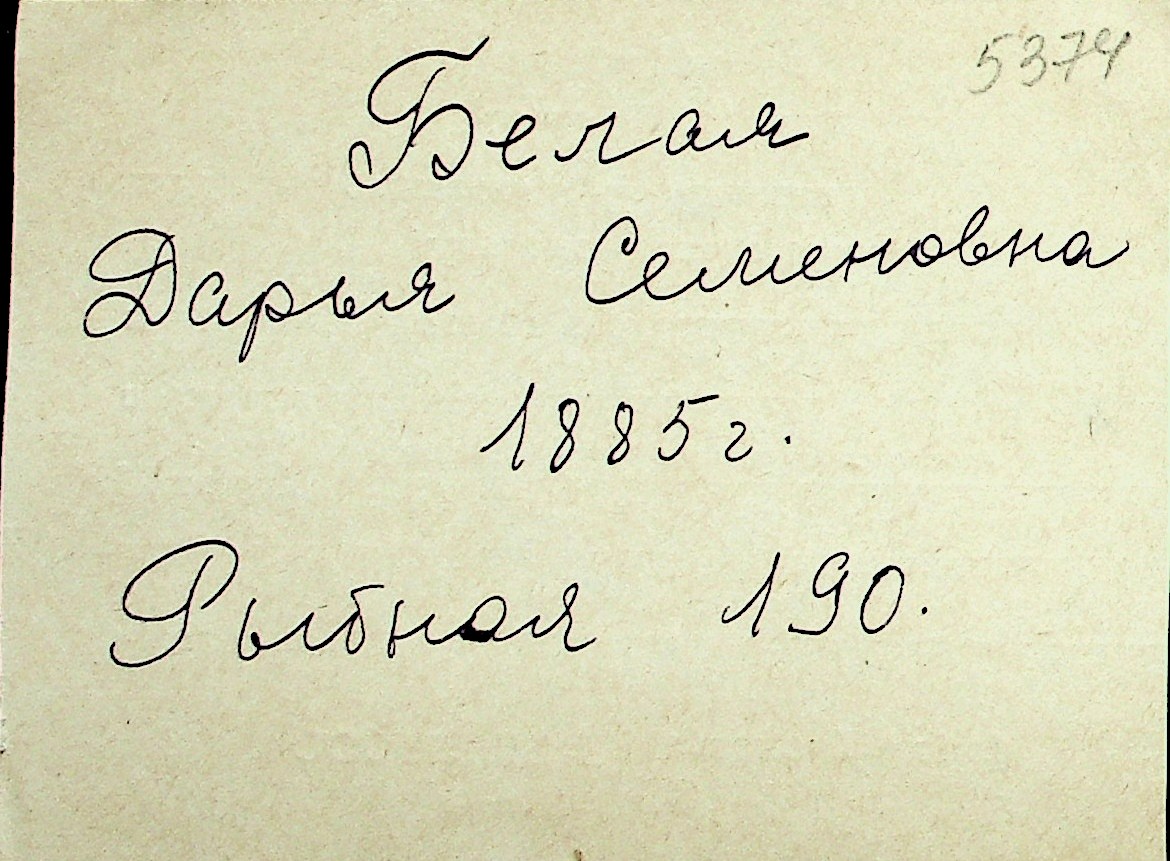 5374
Белая
Дарья Семеновна
1885г.
Рыбная 190.